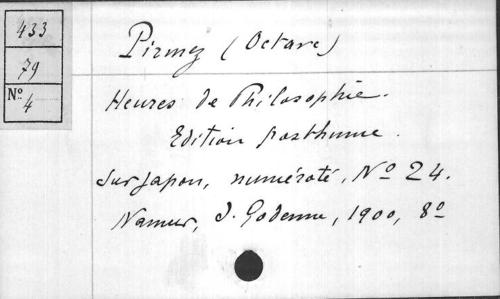 433
79
Nº 4
Pirmez (Octave)
Heures de Philosophie.
Edition posthume.
sur japon, numéroté, Nº 24.
Namur, J. Godenne, 1900, 8º